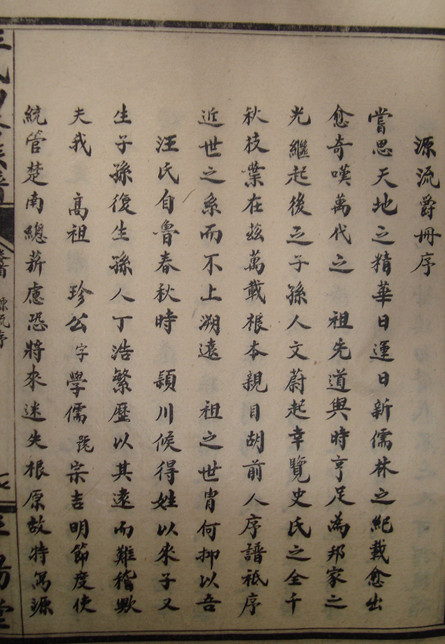 源流爵冊序
嘗思天地之精華日運日新儒林之紀載愈出
愈奇嘆萬代之 祖先道與時亨足為邦家之
光繼起後之子孫人文蔚起幸覽史氏之全千
秋枝葉在茲萬載根本親目胡前人序譜祗序
近世之系而不上溯遠 祖之世胄何抑以吾
汪氏自魯春秋時 頴川候得姓以來子又
生子孫復生孫人丁浩繁歷以其遠而難稽歟
夫我 高祖 珍公字學儒 宗吉明節度使
統管楚南總薪慮恐將來迷失根原故特寫源
源流序